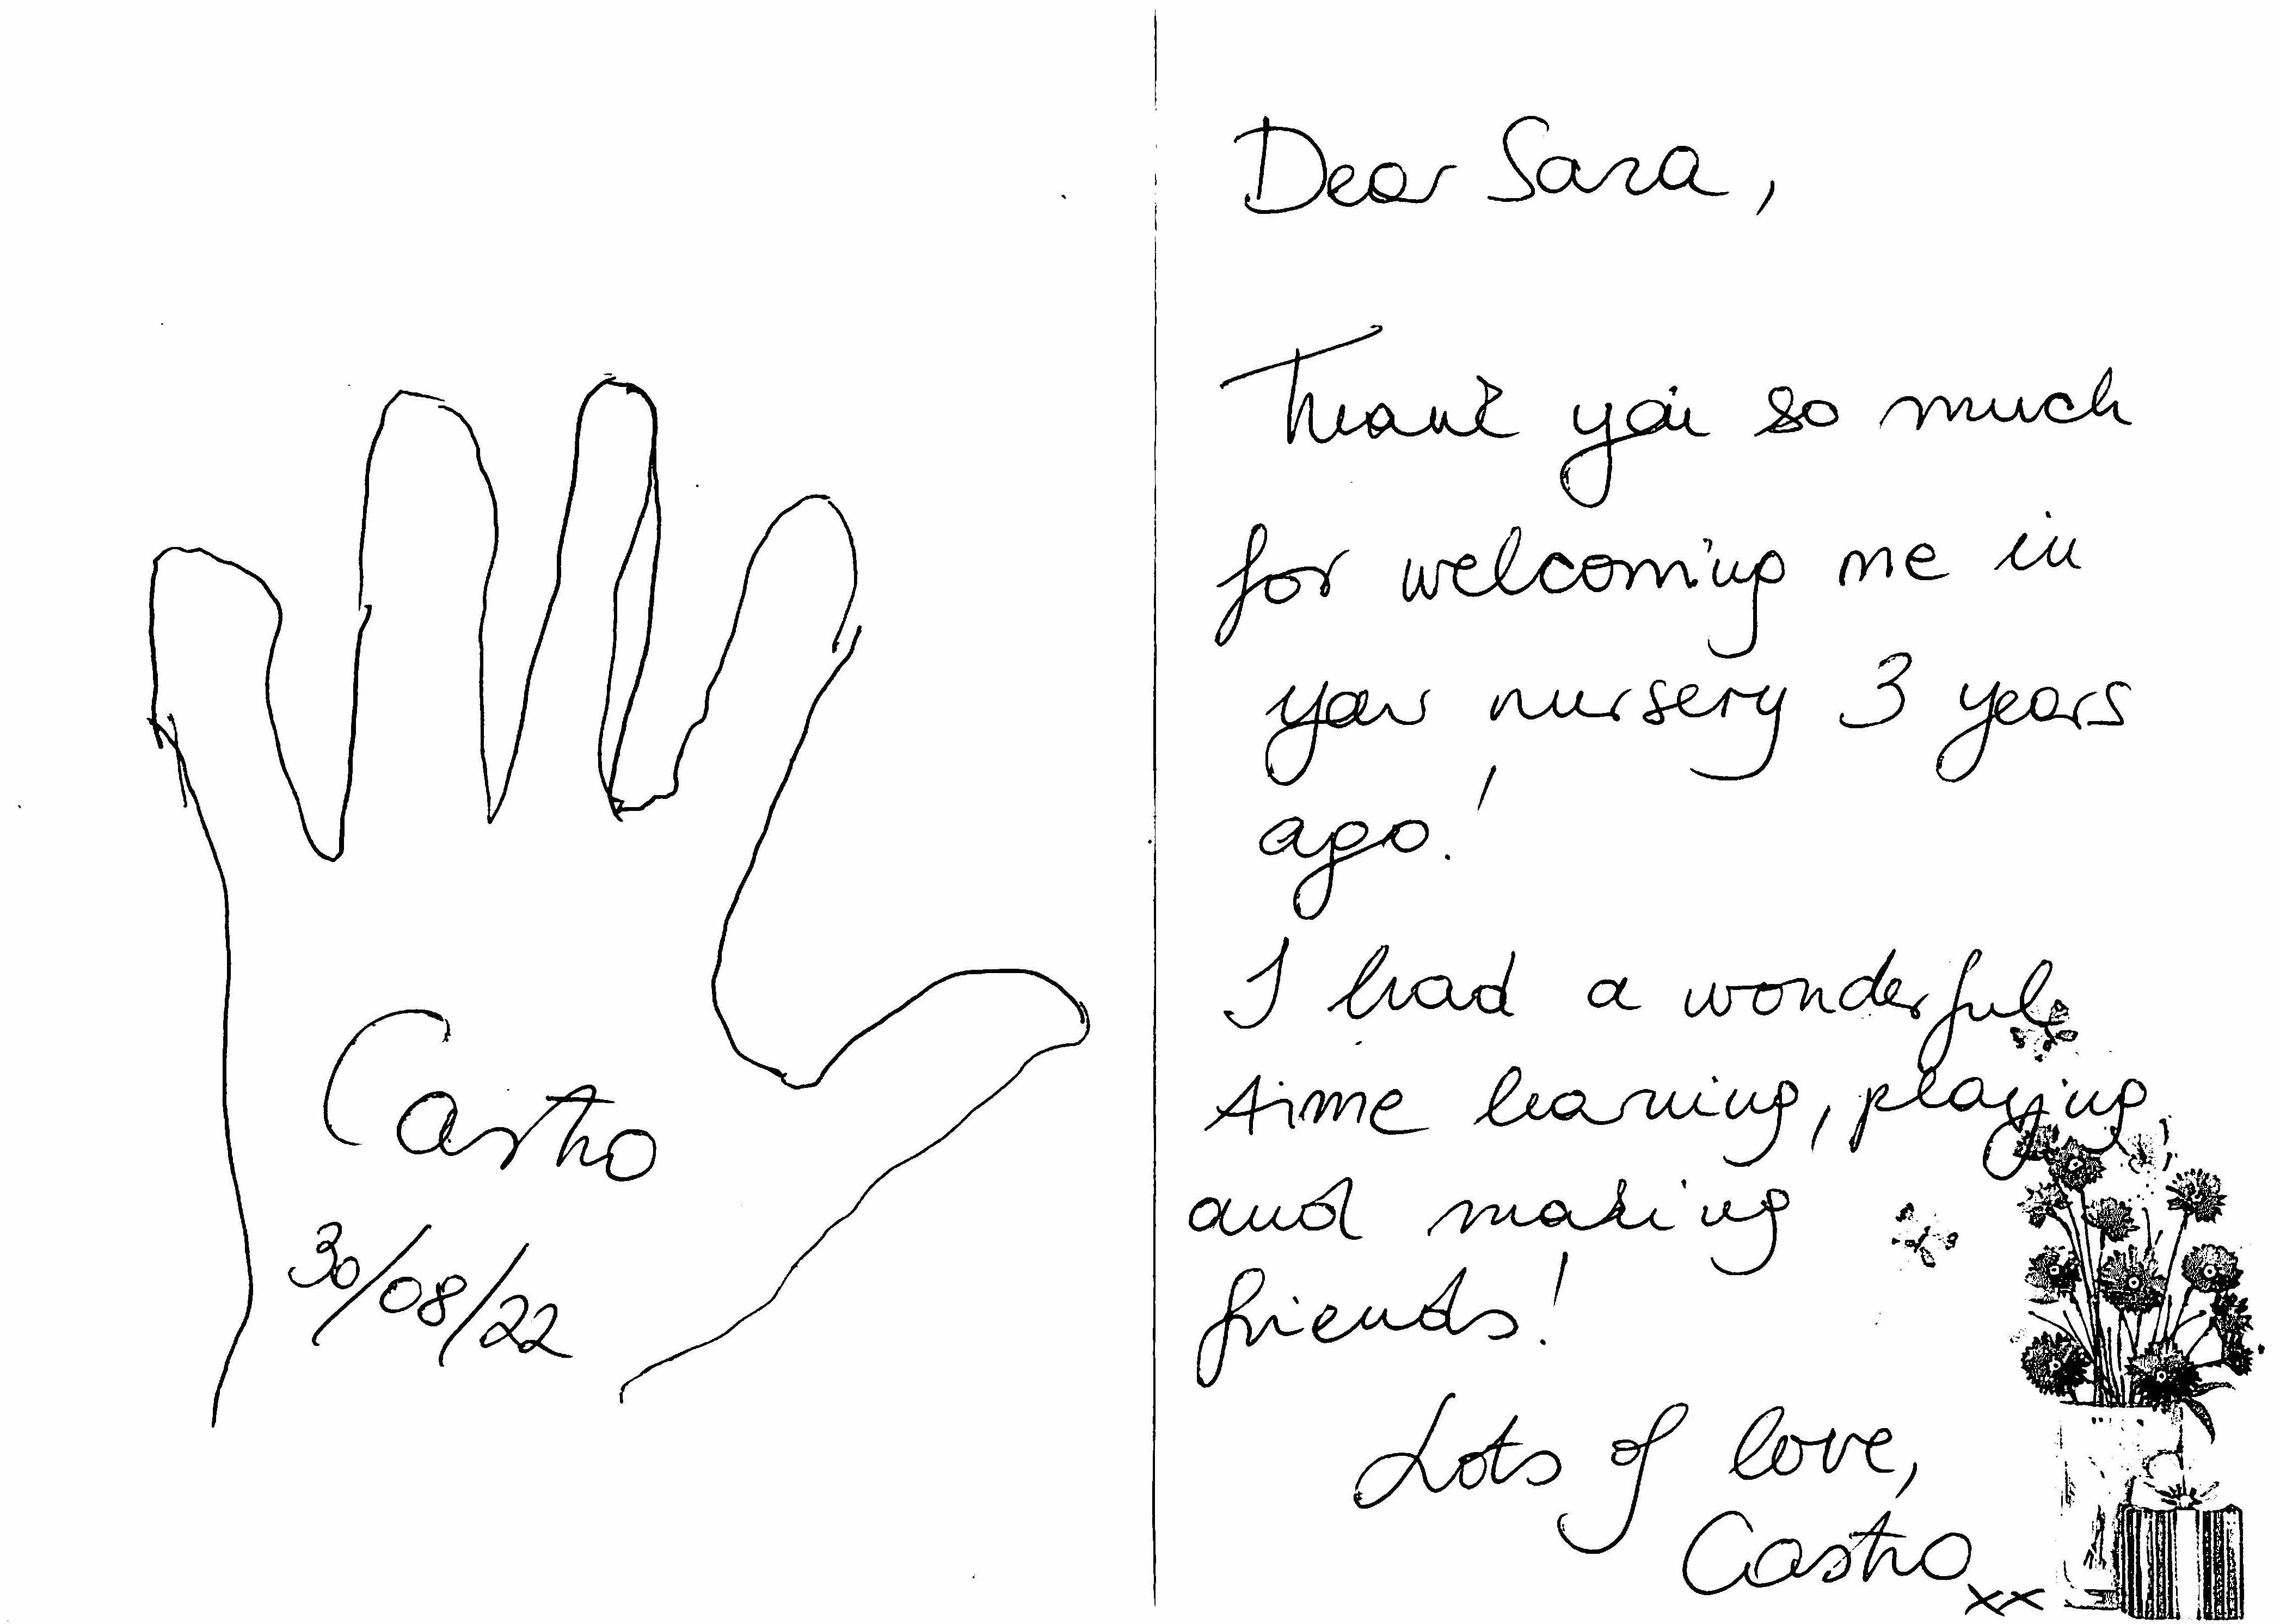 Castro
30/08/22
Dear Sara,
Thank you so much
for welcoming me in
your nursery 3 years
ago!
I had a wonderful
time learning, playing,
and making
friends!
Lots of love,
Castro xx